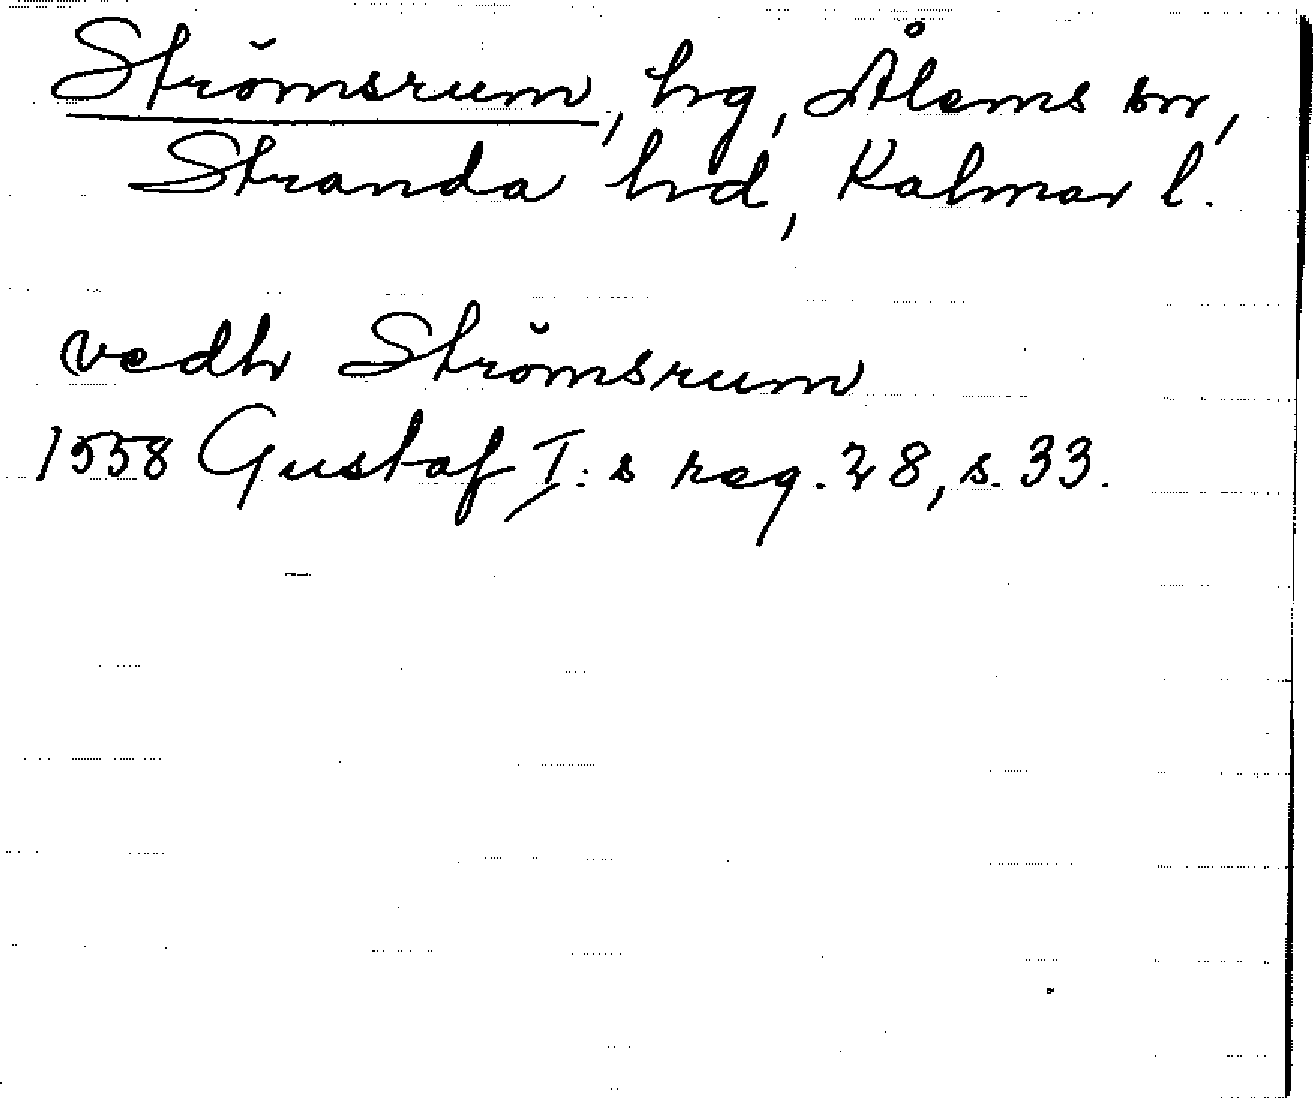 Strömsrum, hg, Ålems sn,
Stranda hd, Kalmar l.
vedh Strömsrum
1558 Gustaf I:s reg. 28, s. 33.